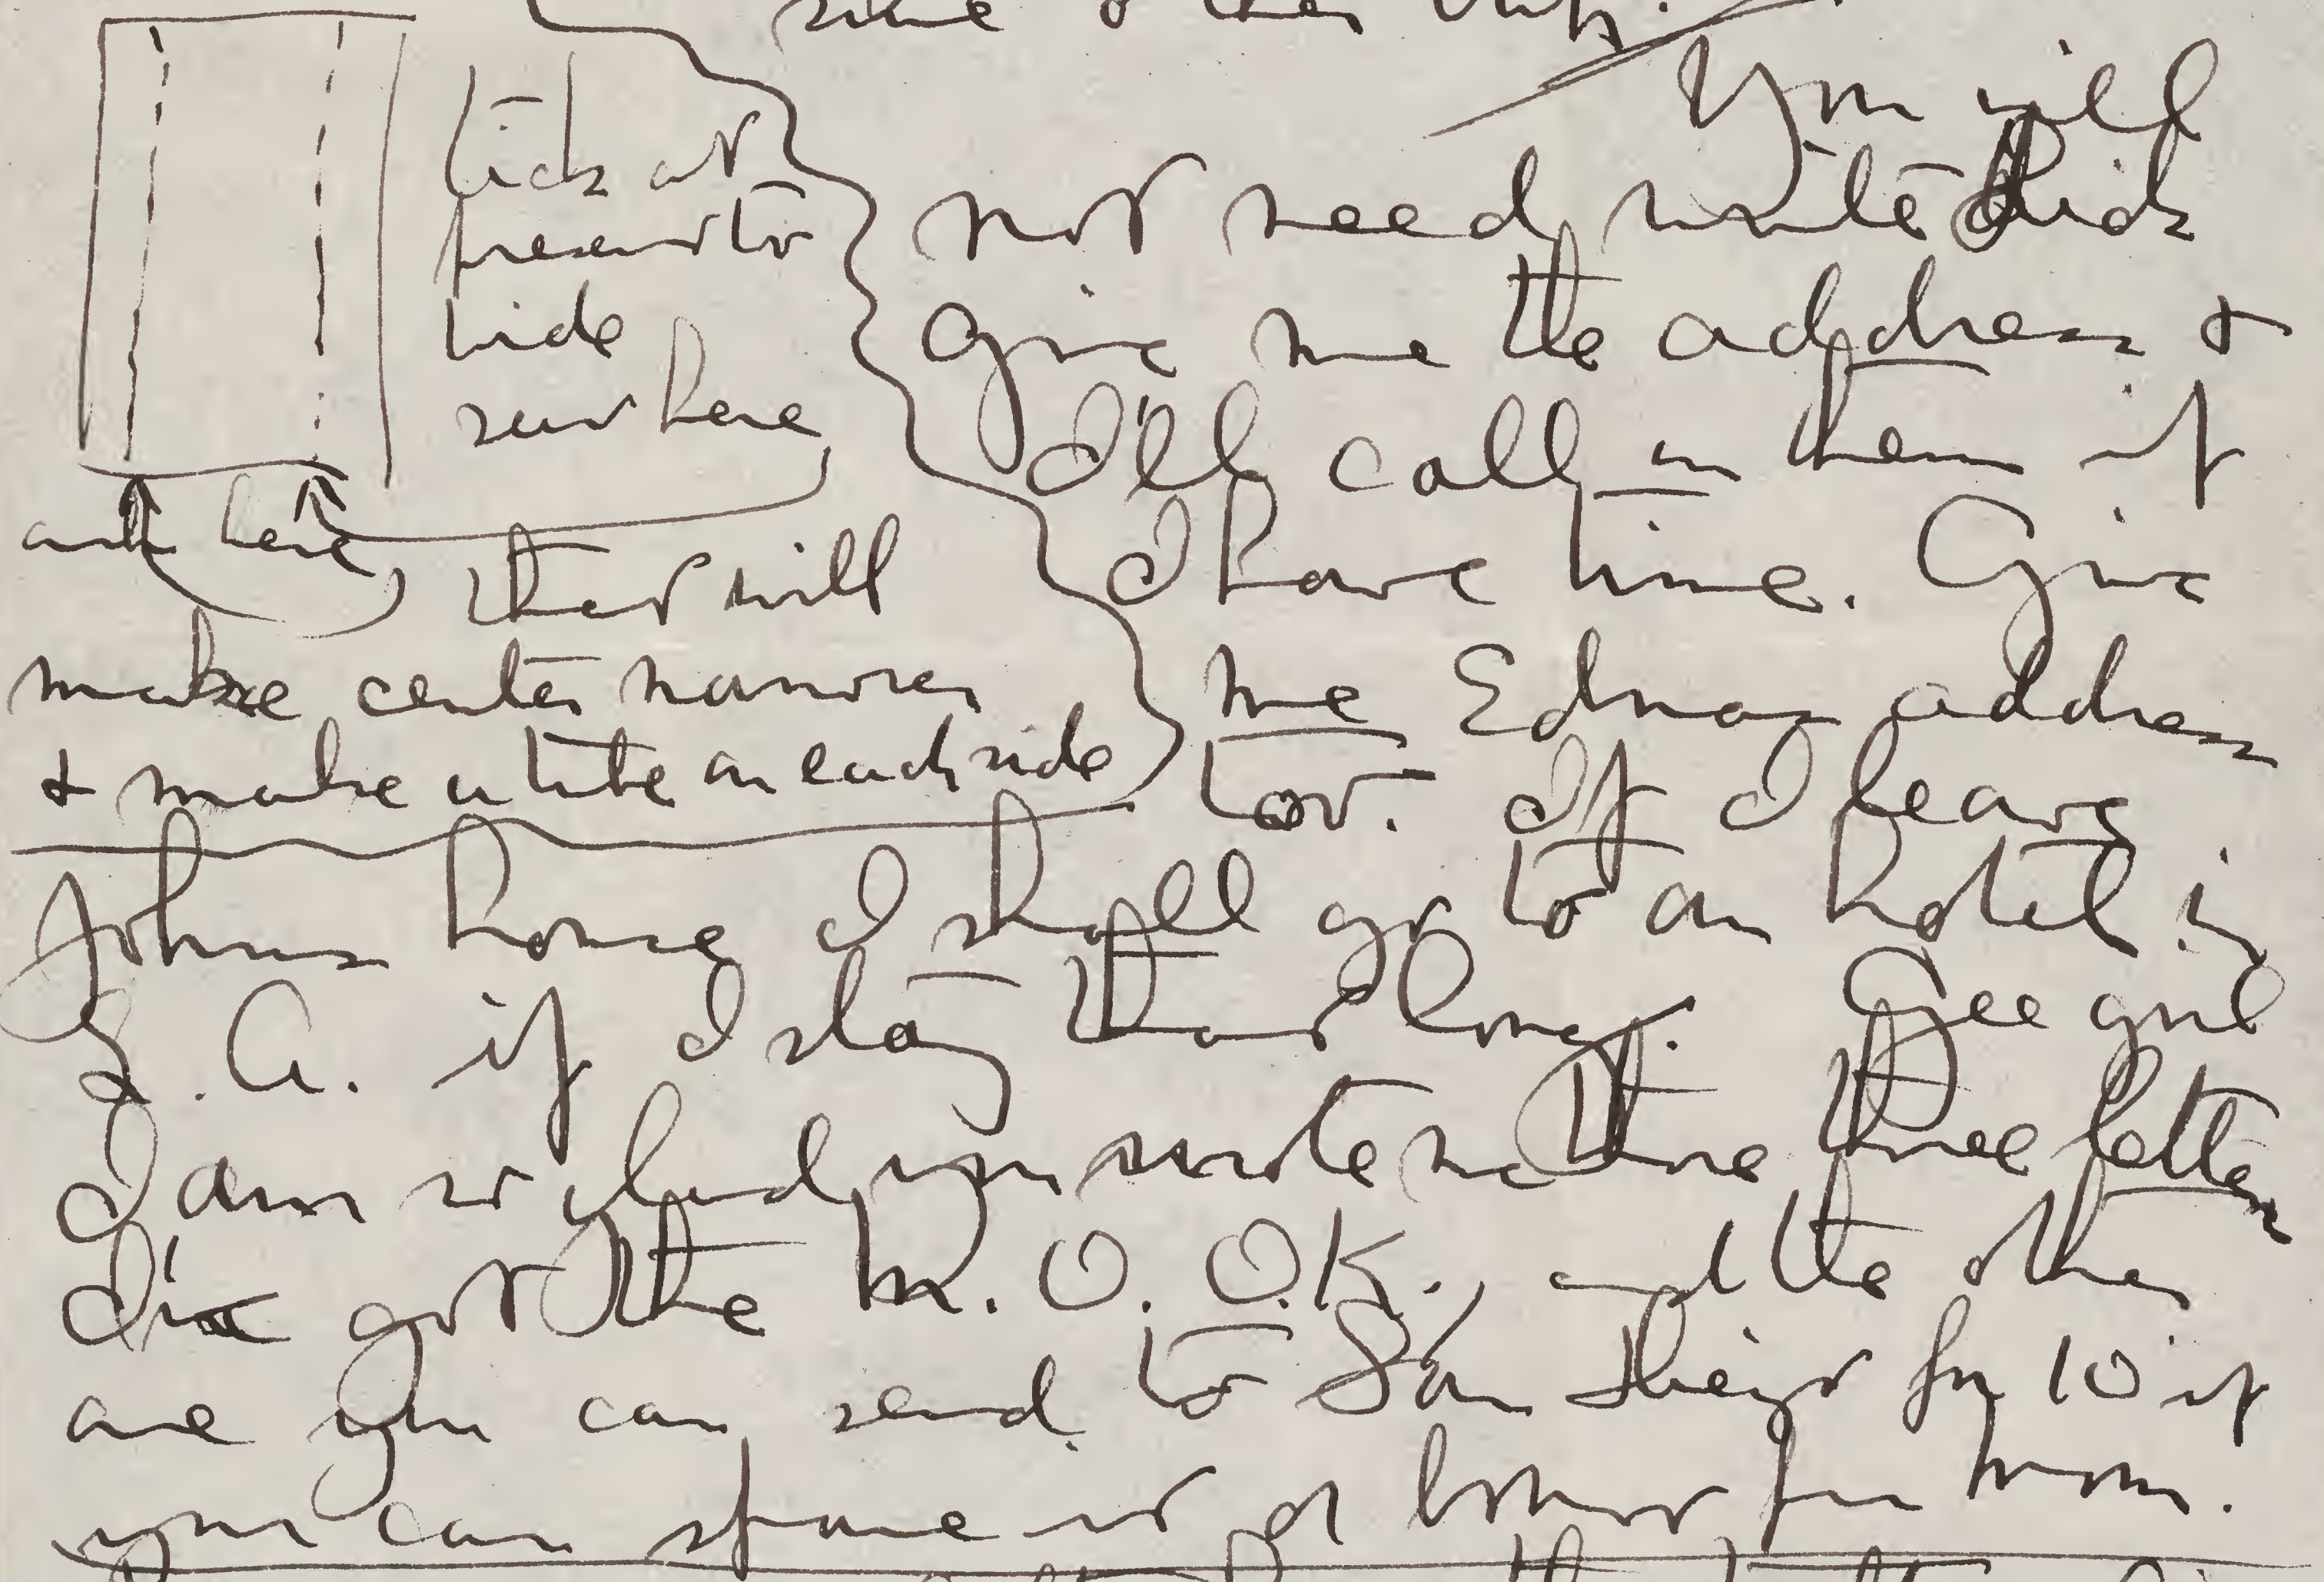 tick at
present too
wide
sew here
and here, that will
make center narrower
& make a tube on each side
You will
not need write Dick
give me the address &
I'll call on them if
I have time. Give
me Ednas address
too. If I leave
Johns house I shall go to an hotel in
L. A. if I stay that long. Gee girl
I am so glad you wrote me those three letters
I've got the M. O. O.K., and the other
one you can send to San Diego for 10 if
you can spare it or borrow from mom.